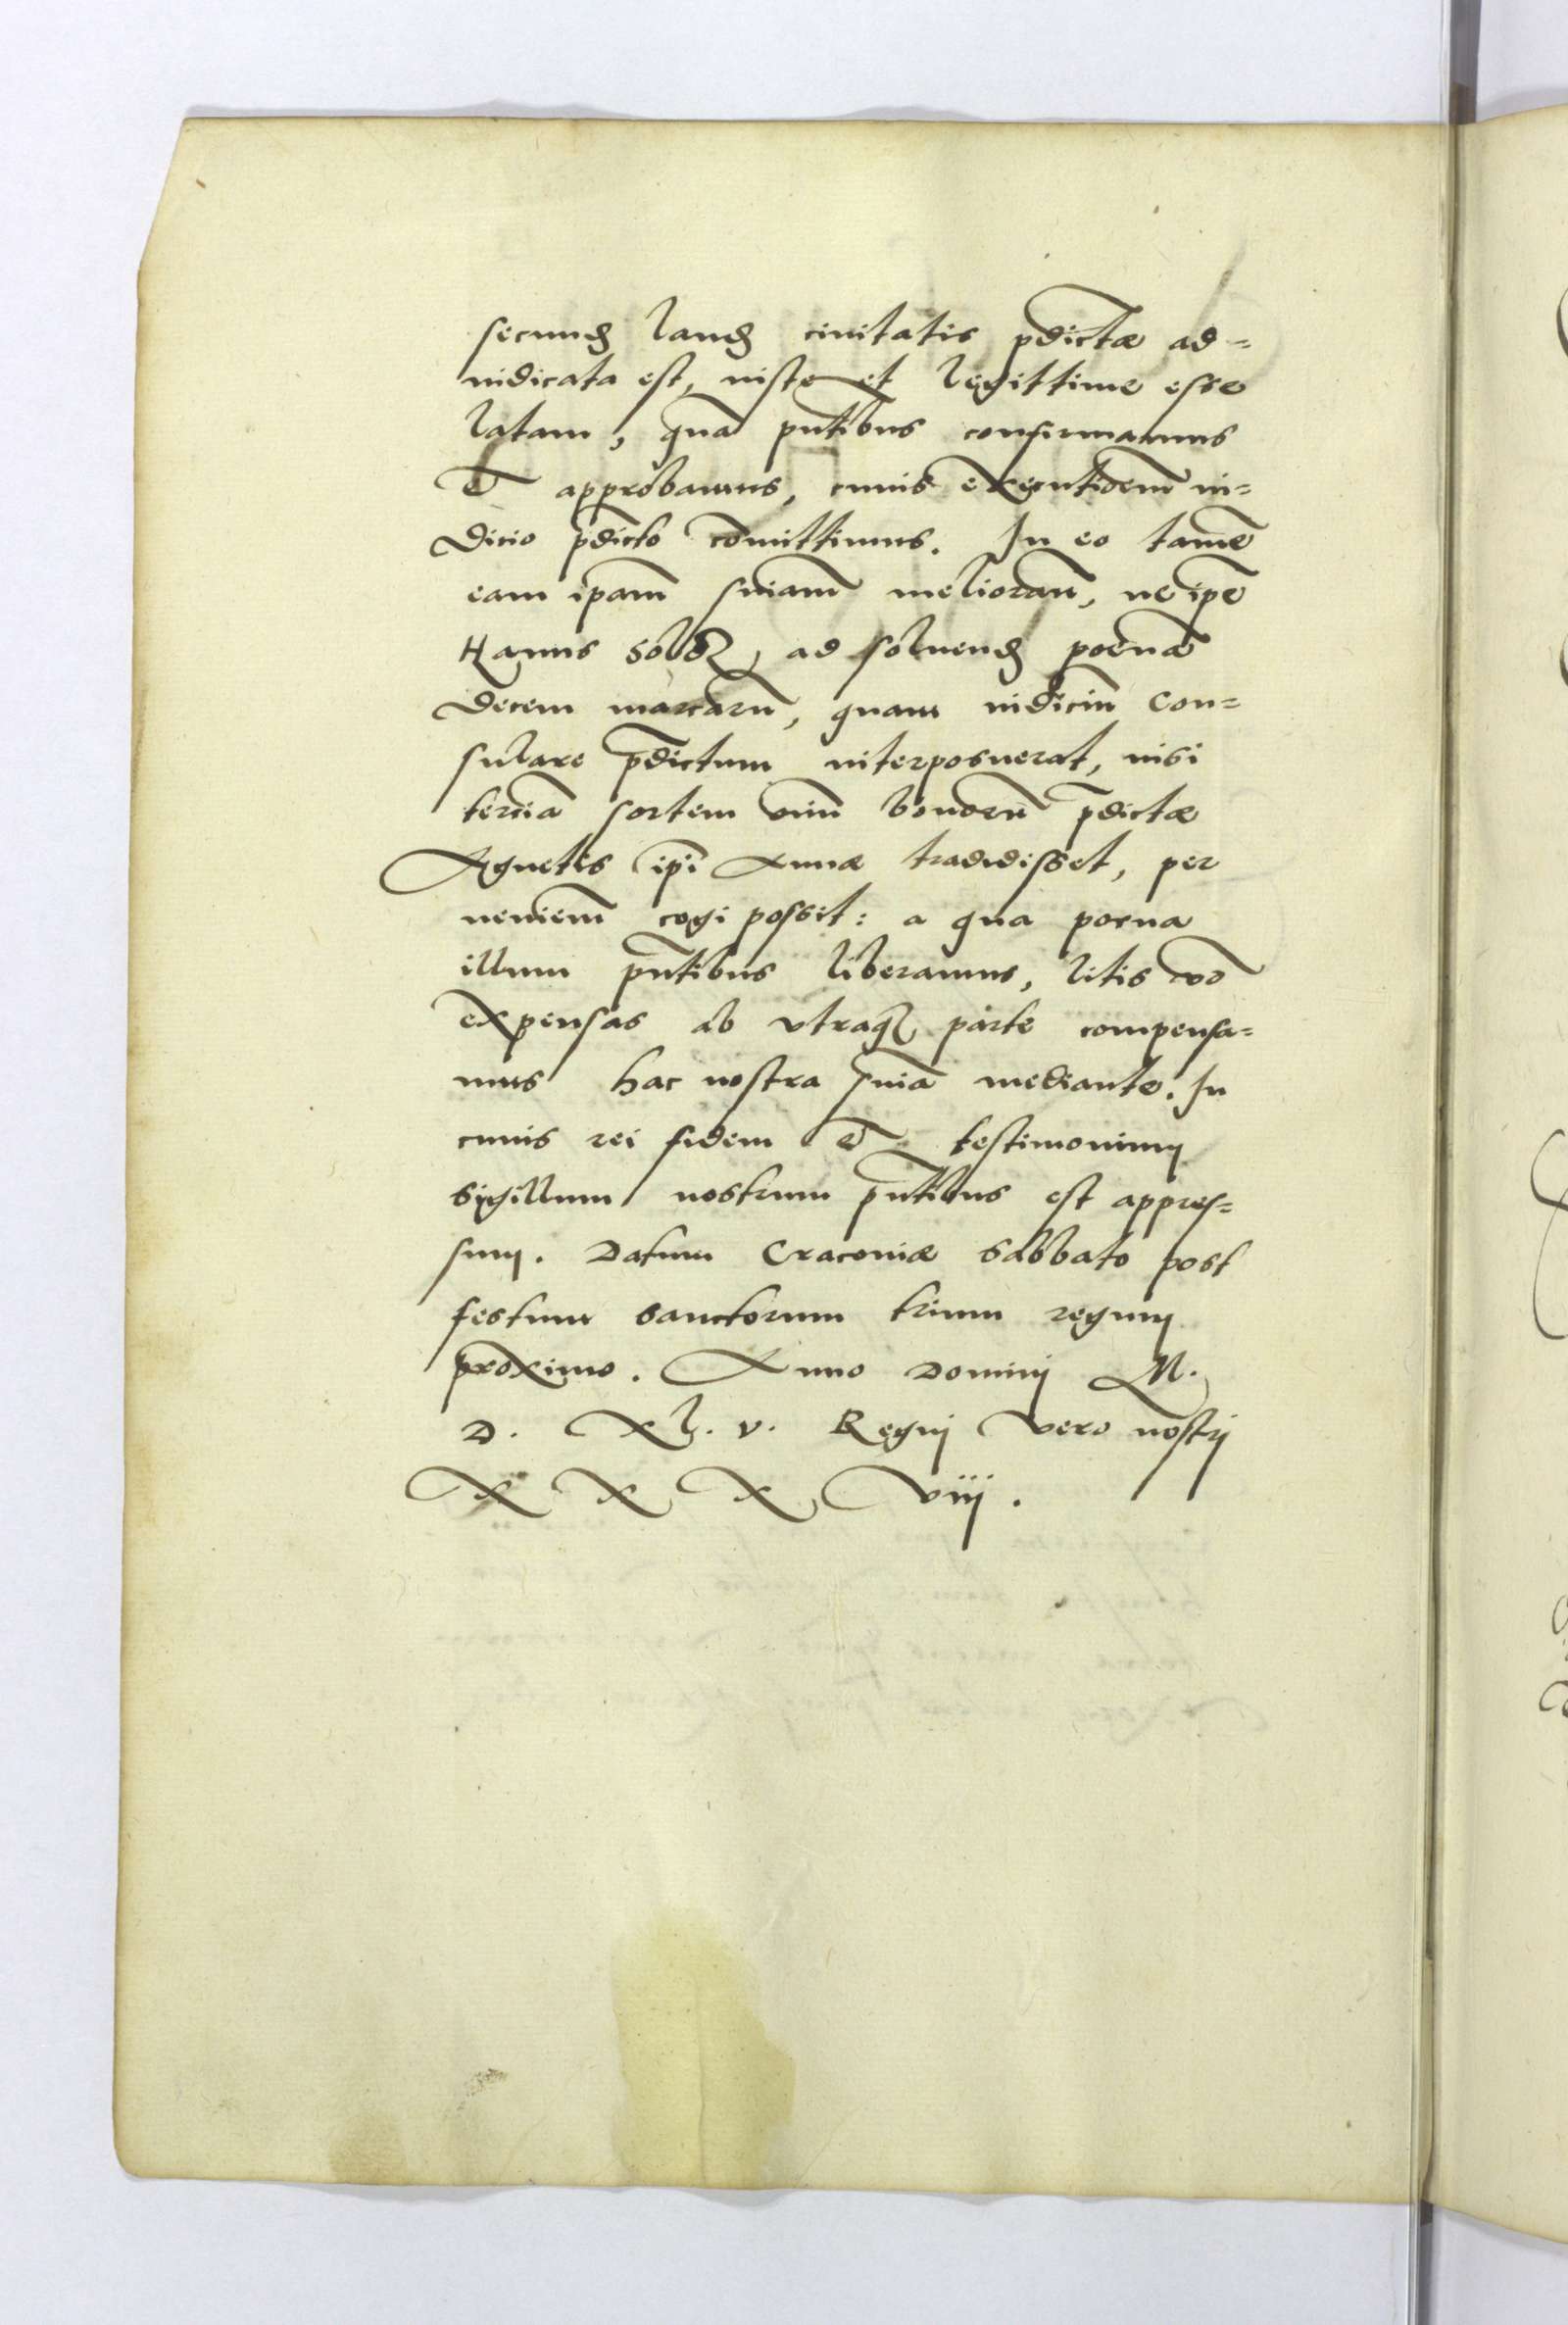 secundꝫ laudꝫ ciuitatis pdictæ ad=
iudicata est, iuste et legittime esse
latam, quā pntibus confirmamus
et approbamus, cuius exequutioem̄ iu=
dicio p̄dicto com̄ittimus. In eo tamē
eam ipam̄ sniam̄ melioran̄, ne ipē
Hanus ad soluendꝫ poenā
decem marcarū, quam iudiciū Con=
sulare p̄dictum interposuerat, nisi
terciā sortem bonorū p̄dictæ
Agnetis ip̄i Annæ tradidisset, per
ueniem̄ cogi possit: a qua poena
illum pn̄tibus liberamus, litis vō
expensas ab vtraqꝫ parte compensa=
mus hac nostra sn̄ia mediante. In
cuius rei fidem et testimonium
sigillum nostrum pn̄tibus est appres=
sum. Datum Cracouiæ sabbato post
festum sanctorum trium regum
proximo. Anno Dominj M.
D. XL. v. Regnj vero nostrj
X X X viij.